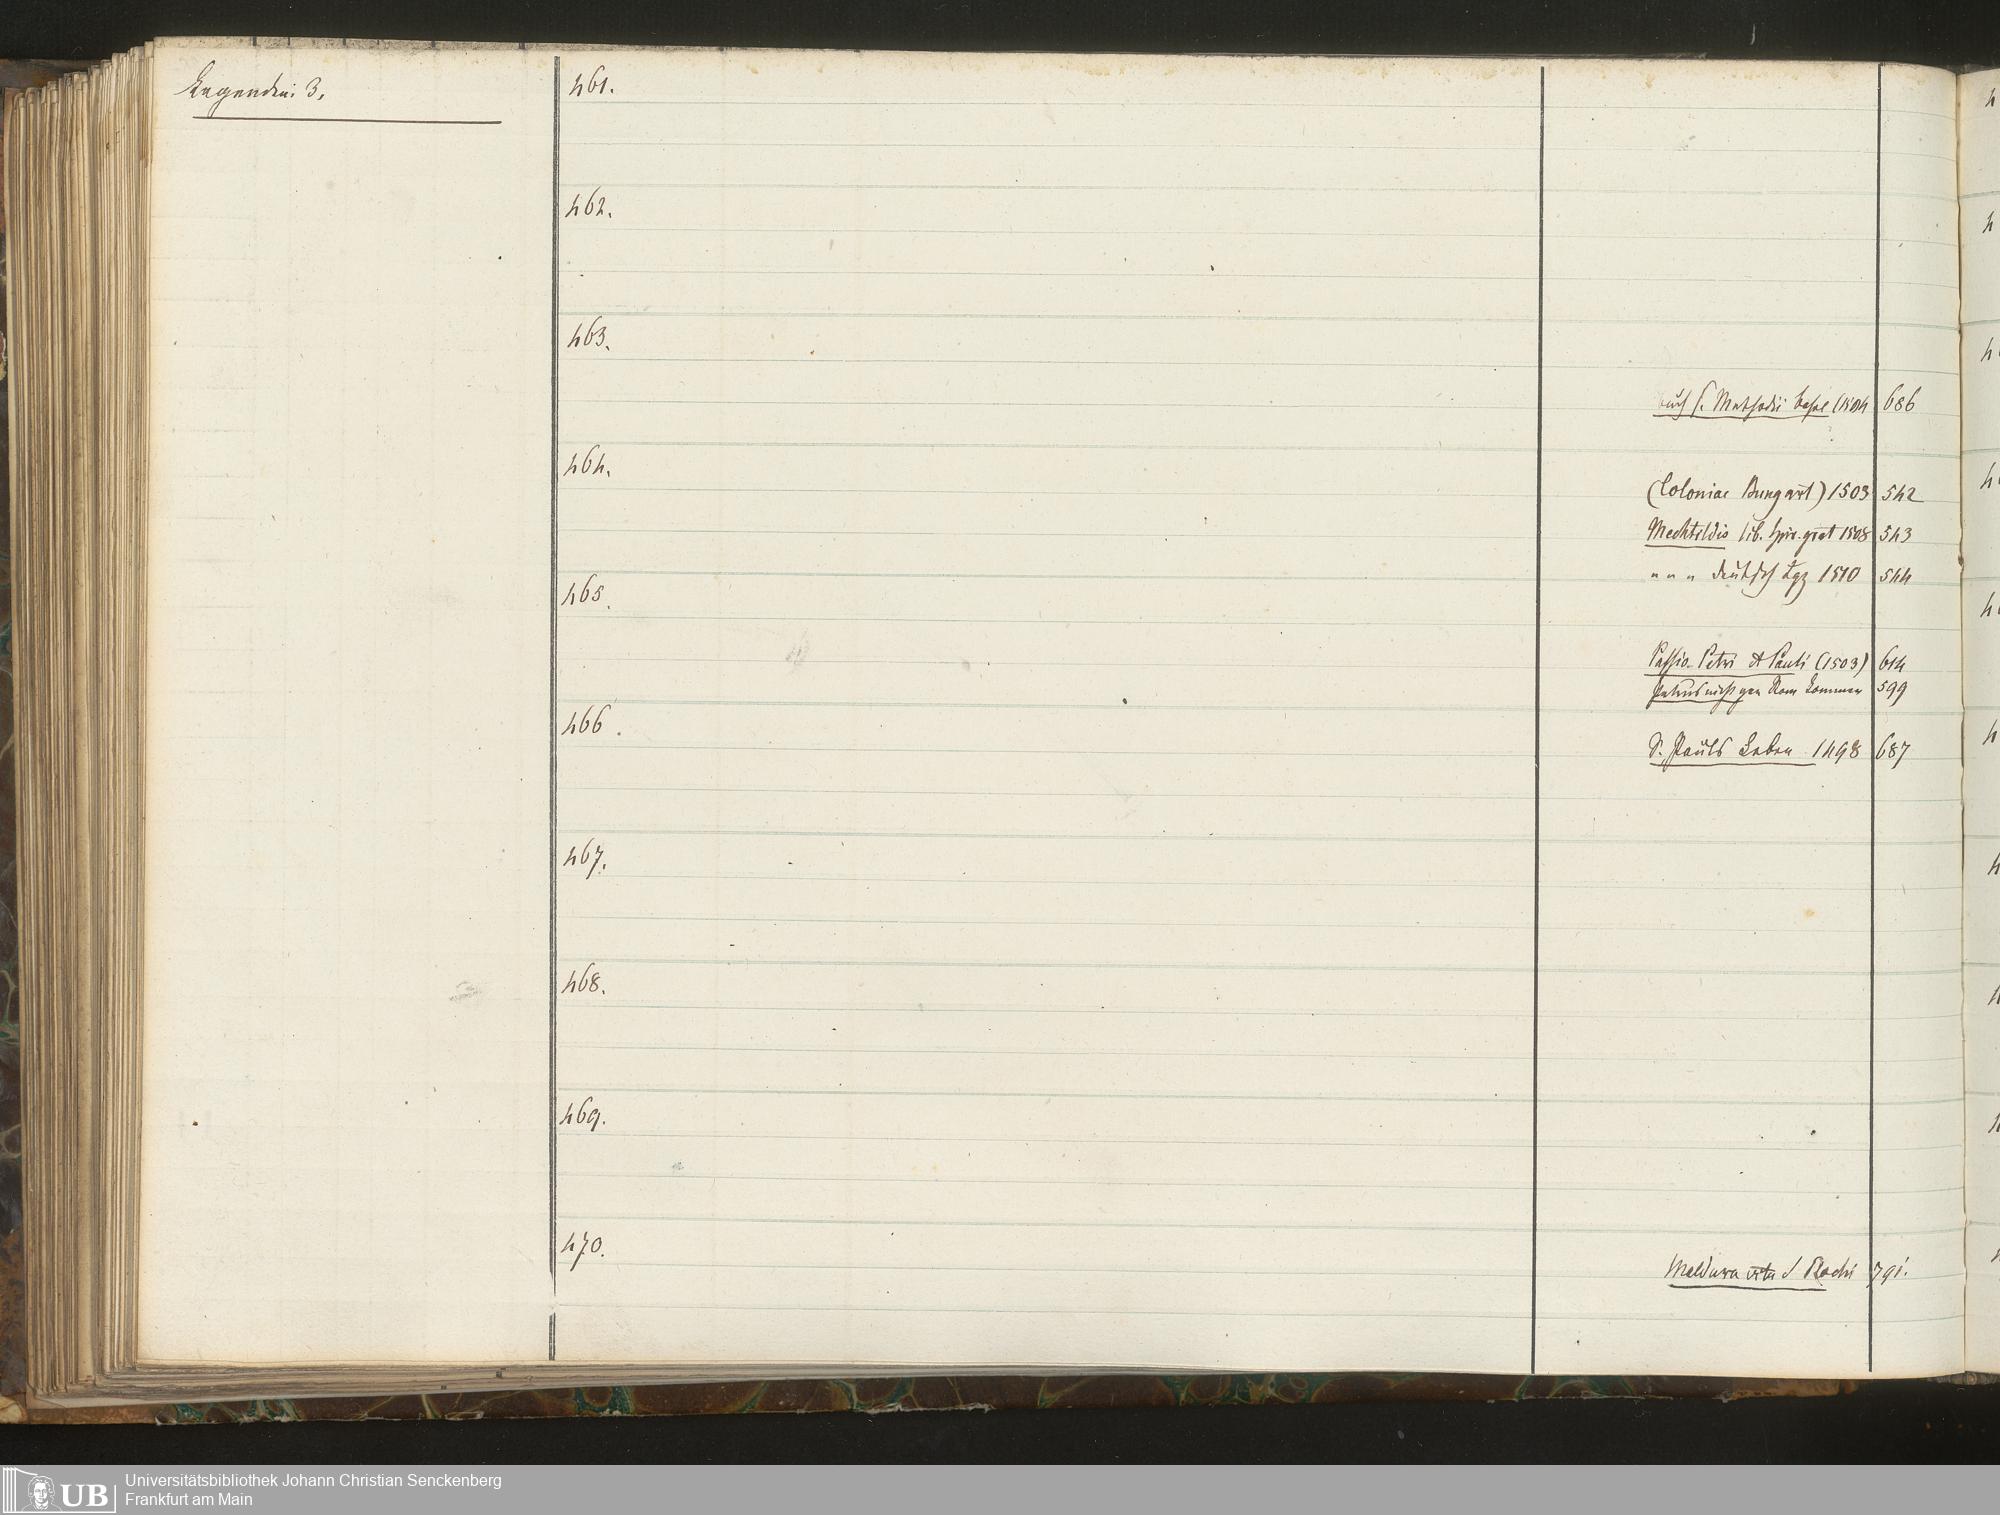 Legenden: 3.
461.
462.
463.
buch S. Methodii Basel (1504 686
464.
(Coloniae Bungart) 1503 542
Mechtildis lib. spir. grat 1508 543
" " " deutsch Lpz 1510 544
465.
Passio Petri et Pauli (1503) 614
Petrus nicht gen Rom kommen 599
466.
S. Pauls Leben 1498 687
467.
468.
469.
470.
Maldura vita S Rochi 791.
UB
Universitätsbibliothek Johann Christian Senckenberg
Frankfurt am Main